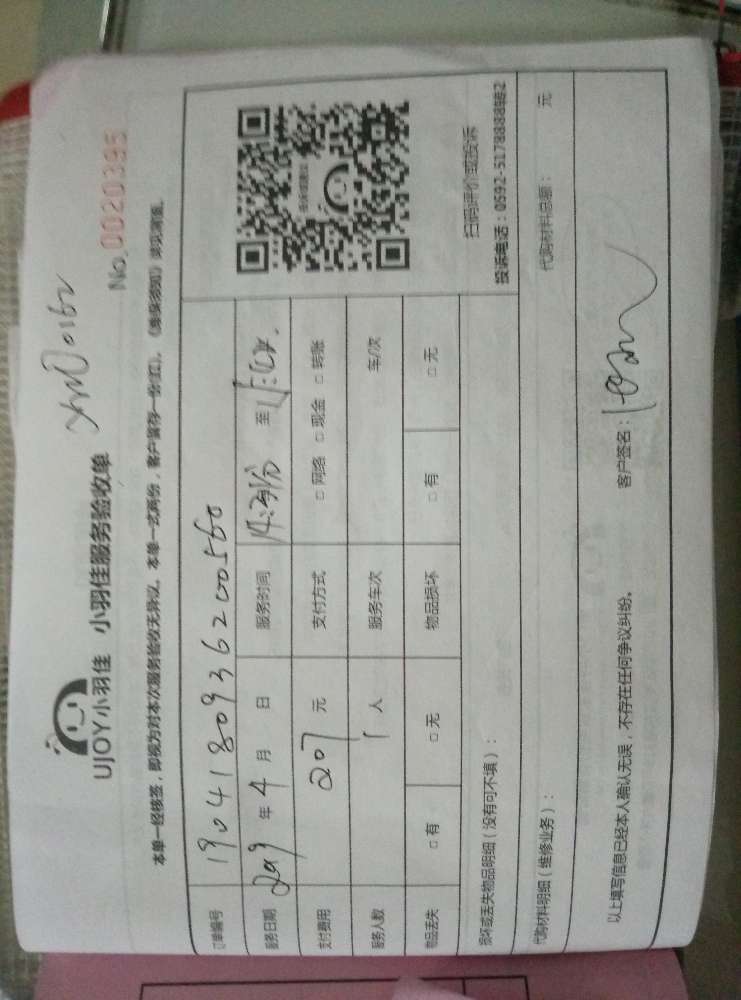 UJOY小羽佳 小羽佳服务验收单
No.0020395
本单一经核签，即视为对本次服务验收无异议。本单一式两份，客户留存一份(红)。
订单编号 1904180936200560
服务日期 2019年4月 日 服务时间 至
支付费用 207元 支付方式 □网络 □现金 □转账
服务人数 1人 服务车次 车/次
物品丢失 □有 □无 物品损坏 □有 □无
扫码评价或投诉
投诉电话：0592-5178888转82
损坏或丢失物品明细（没有可不填）：
代购材料明细（维修业务）： 代购材料总额： 元
以上填写信息已经本人确认无误，不存在任何争议纠纷。 客户签名：